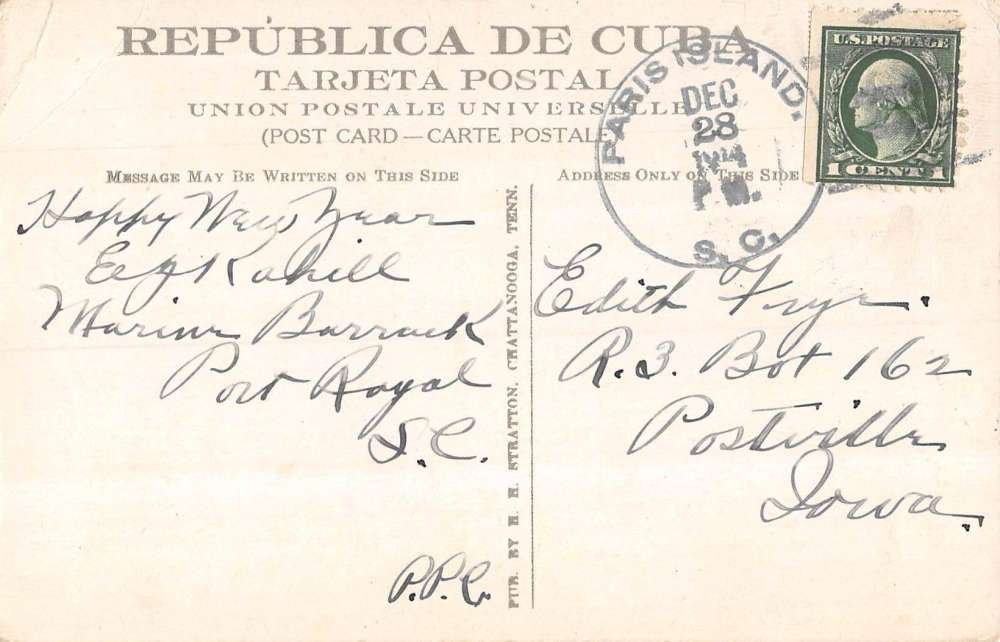 REPÚBLICA DE CUBA
TARJETA POSTAL
UNION POSTALE UNIVERSELLE
(POST CARD — CARTE POSTALE)
MESSAGE MAY BE WRITTEN ON THIS SIDE
ADDRESS ONLY ON THIS SIDE
PARIS ISLAND.
DEC
28
1914
P.M.
S. C.
U.S. POSTAGE
1 CENT 1
Happy New Year
Ed J Kahill
Marine Barrack
Port Royal
S.C.
P.P.C.
PUB. BY H. H. STRATTON, CHATTANOOGA, TENN.
Edith Frye.
R.3. Box 162
Postville
Iowa